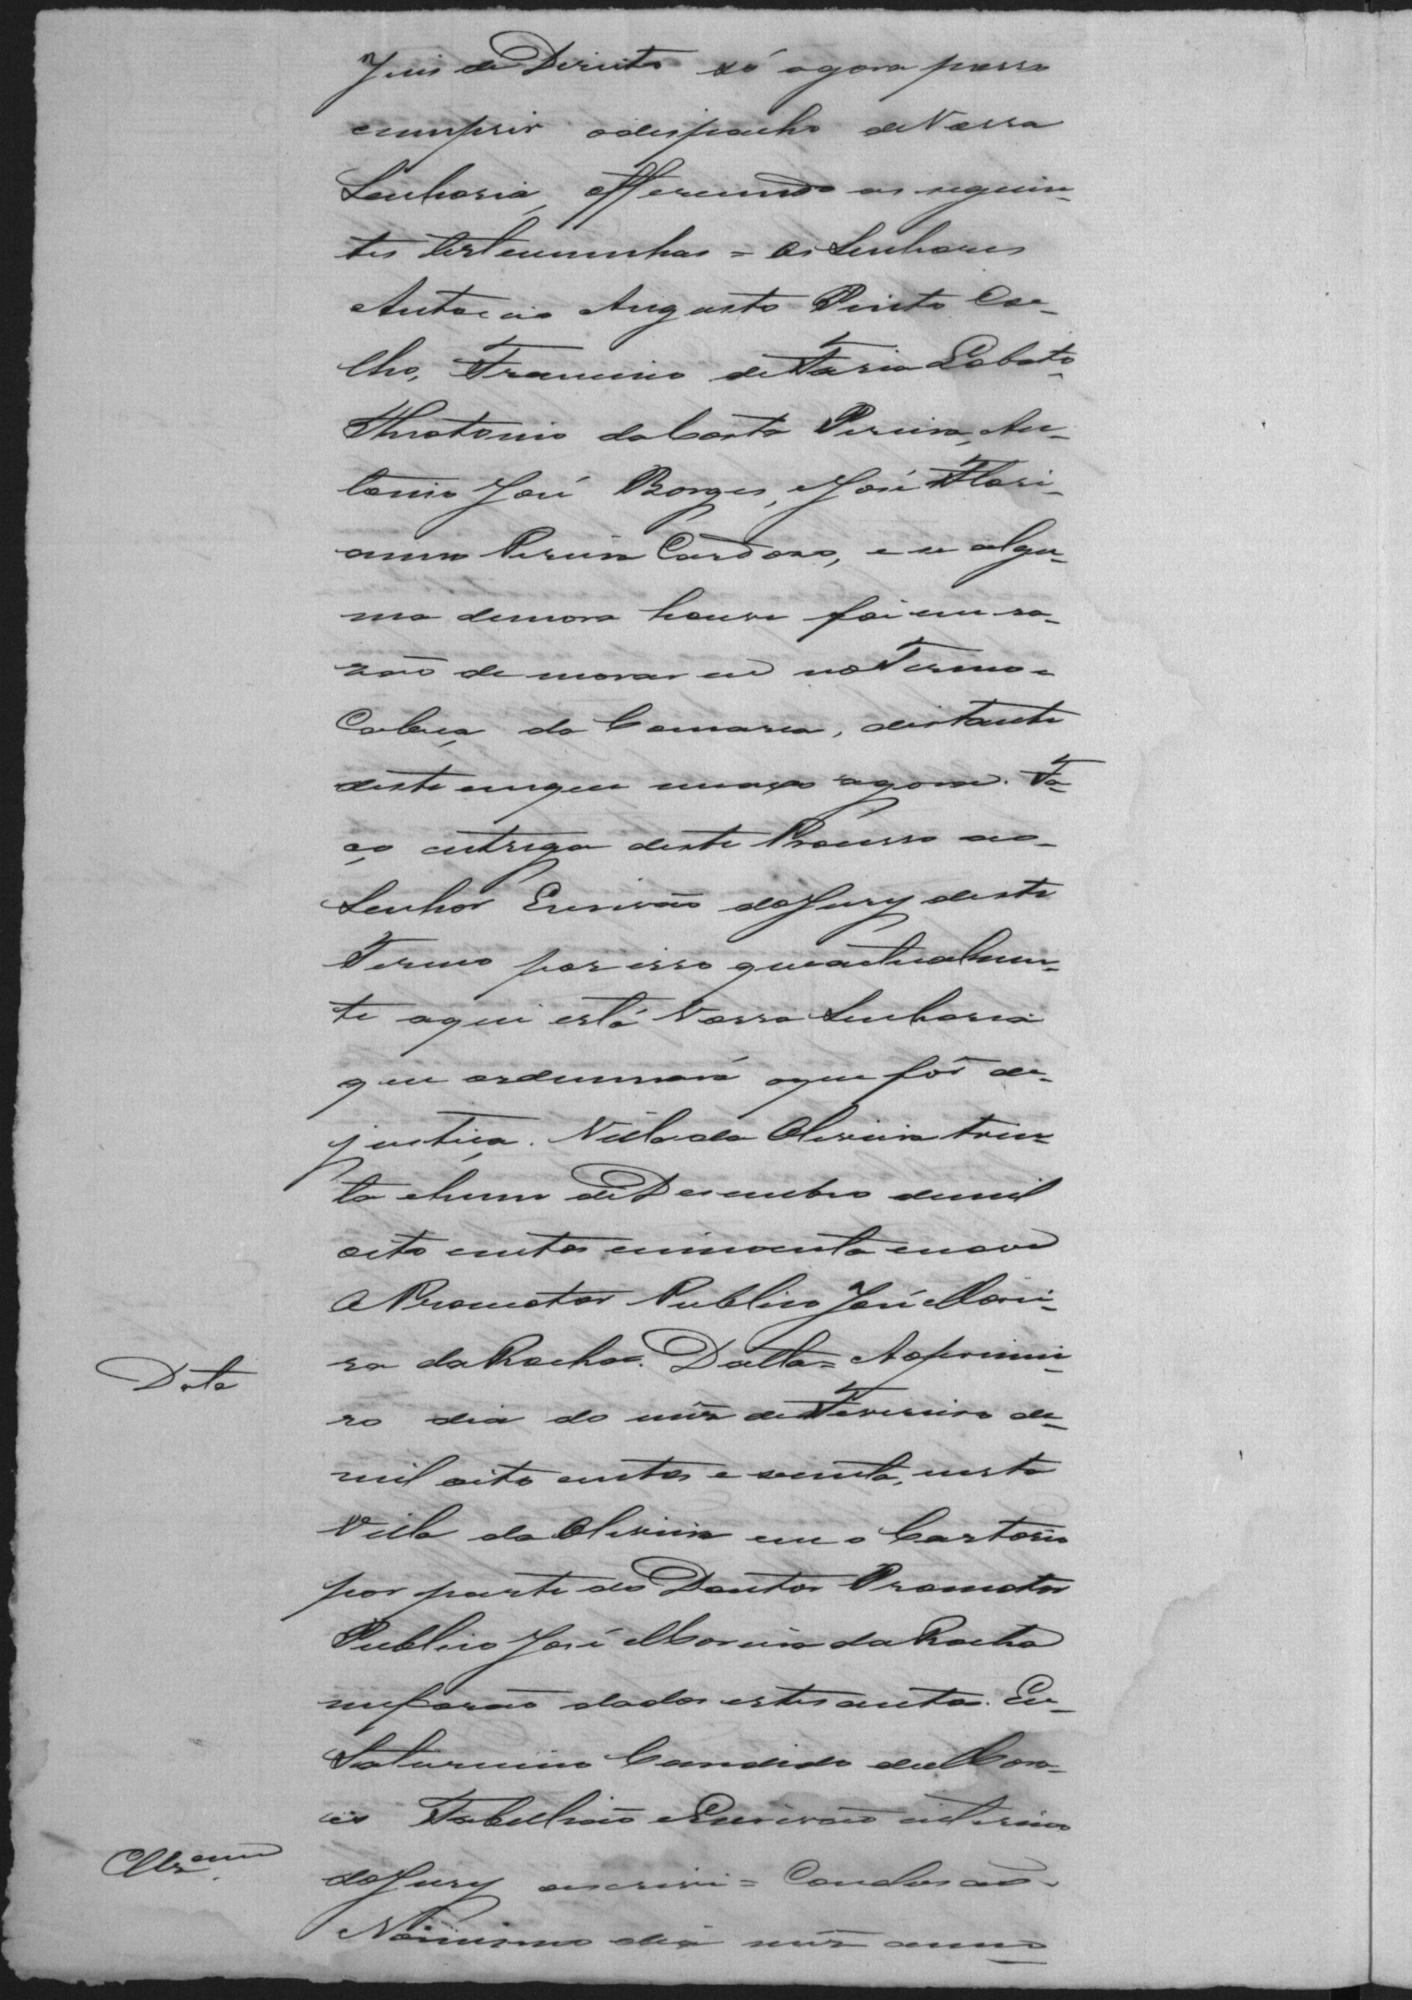 Juis de Direito só agora posso
cumprir odespacho deVossa
Senhoria, offerecendo as seguin-
tes testemunhas = Os Senhores
Antonio Augusto Pinto Coe-
lho, Francisco deFaria Lobato,
Theotonio daCosta Pereira, An-
tonio José Borges, eJosé Flori-
anno Pereira Cardoso, e se algu-
ma demora houve foi em ra-
zão de morar eu noTermo-
Cabeça da Comarca, distante
deste emque moro agora. Fa-
ço entrega deste Processo ao-
Senhor Escrivão doJury deste
Termo por isso queactualmen-
te aqui está Vossa Senhoria
que ordennará oque fôr de-
justiça. Villa da Oliveira trin-
ta ehum deDesembro demil
oito centos cincoenta enove
O Promotor Publico José Morei-
ra daRocha. Datta = Aoprimei-
Data
ro dia do mêz deFevereiro de-
mil oito centos e secenta, nesta
Villa da Oliveira em o Cartorio
por parte do Doutor Promotor
Publico José Moreira da Rocha
meforão dados estes autos. Eu-
Saturnino Candido deMora-
es Tabellião eEscrivão interino
Clz.am
doJury oescrivi = Conclusão-
Nomesmo dia mêz anno